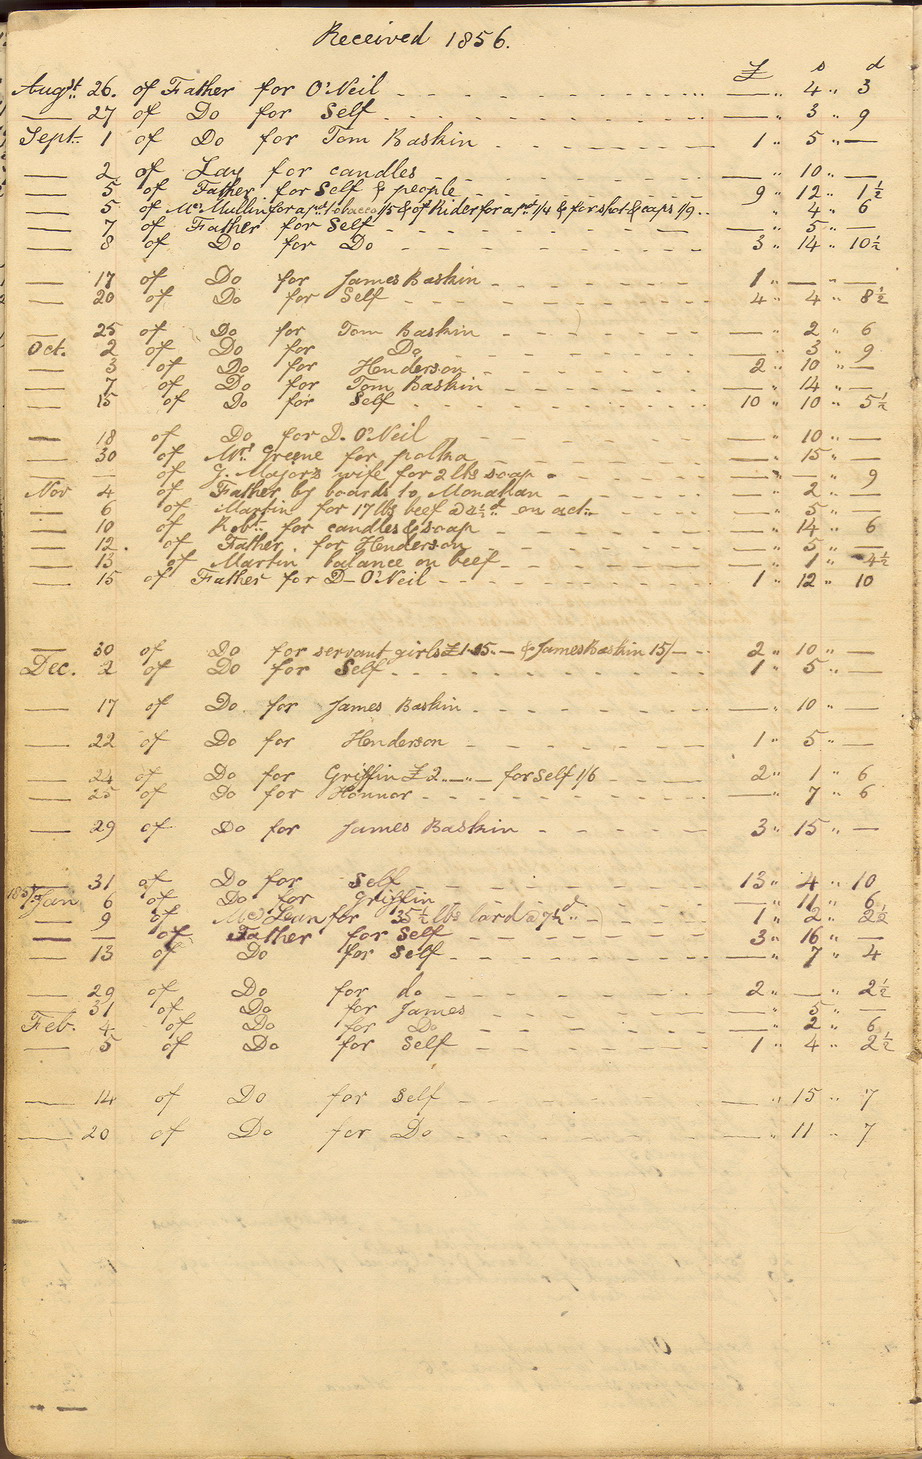 Received 1856.
£ s d
Augst. 26. of Father for O'Neil — " 4 " 3
— 27 of Do for Self — " 3 " 9
Sept. 1 of Do for Tom Baskin 1 " 5 " —
— 2 of Lay for candles — " 10 " —
— 5 of Father for Self & people 9 " 12 " 1½
— 5 of Mc.Mullin for a pr. tobacco 1/5 & of Rider for a pr. 1/4 & for shot & caps 1/9 " 4 " 6
— 7 of Father for Self — " 5 " —
— 8 of Do for Do 3 " 14 " 10½
— 17 of Do for James Baskin 1 " — " —
— 20 of Do for Self 4 " 4 " 8½
— 25 of Do for Tom Baskin — " 2 " 6
Oct. 2 of Do for Do — " 3 " 9
— 3 of Do for Henderson 2 " 10 " —
— 7 of Do for Tom Baskin — " 14 " —
— 15 of Do for Self 10 " 10 " 5½
— 18 of Do for D. O'Neil — " 10 " —
— 30 of Mrs Greene for polka — " 15 " —
— — of G. Majors wife for 2 lbs soap — " — " 9
Nov 4 of Father by boards to Monahan — " 2 " —
— 6 of Martin for 17 lbs beef on act. — " 5 " —
— 10 of Robt. for candles & soap — " 14 " 6
— 12. of Father. for Henderson — " 5 " —
— 13 of Martin balance on beef — " 1 " 4½
— 15 of Father for D— O'Neil 1 " 12 " 10
— 30 of Do for servant girls £1.15.— & James Baskin 15/— 2 " 10 " —
Dec. 2 of Do for Self 1 " 5 " —
— 17 of Do. for James Baskin — " 10 " —
— 22 of Do for Henderson 1 " 5 " —
— 24 of Do for Griffin £2.—"— for self 1/6 2 " 1 " 6
— 25 of Do for Honnor — " 7 " 6
— 29 of Do for James Baskin 3 " 15 " —
— 31 of Do for Self 13 " 4 " 10
1857 Jan 6 of Do for Griffin — " 11 " 6
— 9 of McLean for 35½ lbs lard a 7½d 1 " 2 " 2½
— — of Father for Self 3 " 16 " —
— 13 of Do for Self — " 7 " 4
— 29 of Do for do 2 " — " 2½
— 31 of Do for James — " 5 " —
Feb. 4 of Do for Do — " 2 " 6
— 5 of Do for Self 1 " 4 " 2½
— 14 of Do for Self — " 15 " 7
— 20 of Do for Do — " 11 " 7